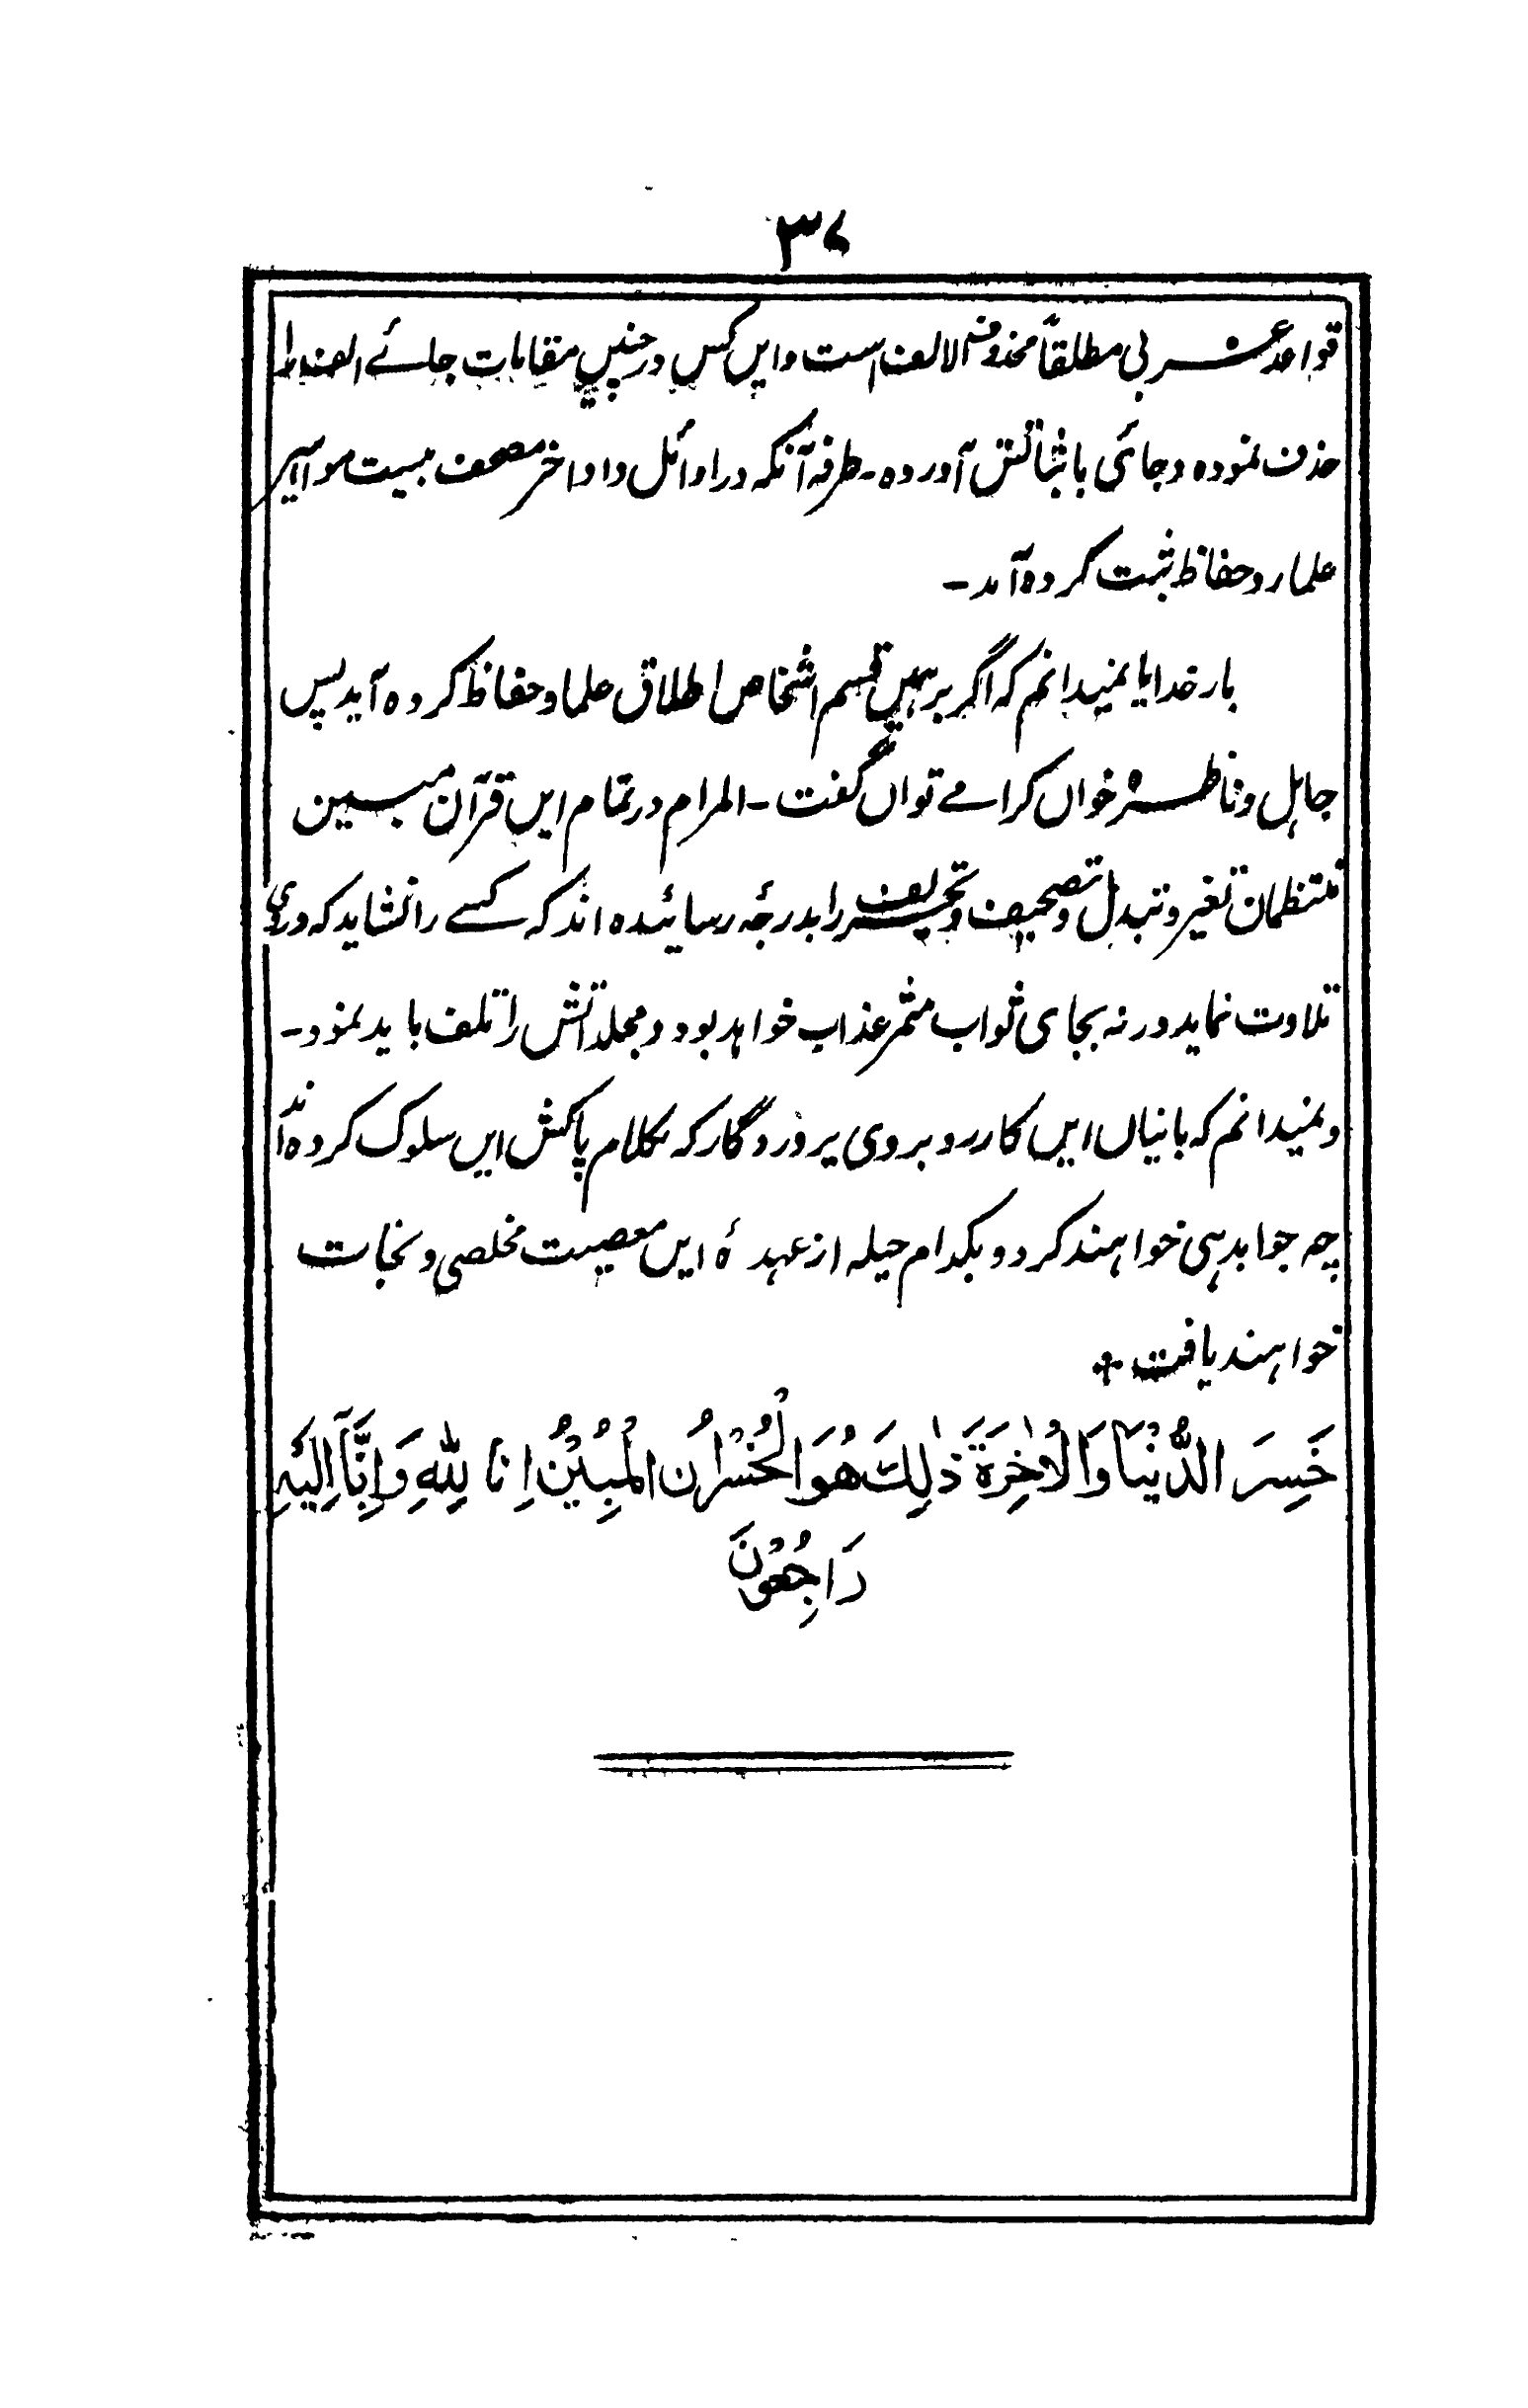 ۳۷
قواعد عربی مطلقاً محذوف الالف است و ایں کس در چنیں مقامات جائے الف را
حذف نموده و جائی باثباتش آورده - طرفه آنکه در اوائل و اواخر مصحف بیست مواہیر
علمار و حفاظ ثبت کرده آمد -
بار خدایا نمیدانم که اگر بر ہمیں قسم اشخاص اطلاق علما و حفاظ کرده آید پس
جاہل و ناظره خواں کرا مے تواں گفت - المرام در تمام ایں قرآن مبین
منتظمان تغیر و تبدل و تصحیف و تحریف را بدرجۂ رسائیده اند که کسے را نشاید که دریں
تلاوت نماید ورنه بجای ثواب مثمر عذاب خواہد بود و مجلداتش را تلف باید نمود -
و نمیدانم که بانیاں ایں کار رو بروی پروردگار که بکلام پاکش ایں سلوک کرده اند
چه جوابدہی خواہند کرد و بکدام حیله از عہدۂ ایں معصیت مخلصی و نجات
خواہند یافت +
خَسِرَ الدُّنْيَا وَالْاٰخِرَةَ ذٰلِكَ هُوَ الْخُسْرَانُ الْمُبِيْنُ اِنَا لِلّٰهِ وَاِنَّآ اِلَيْهِ
رَاجِعُوْنَ